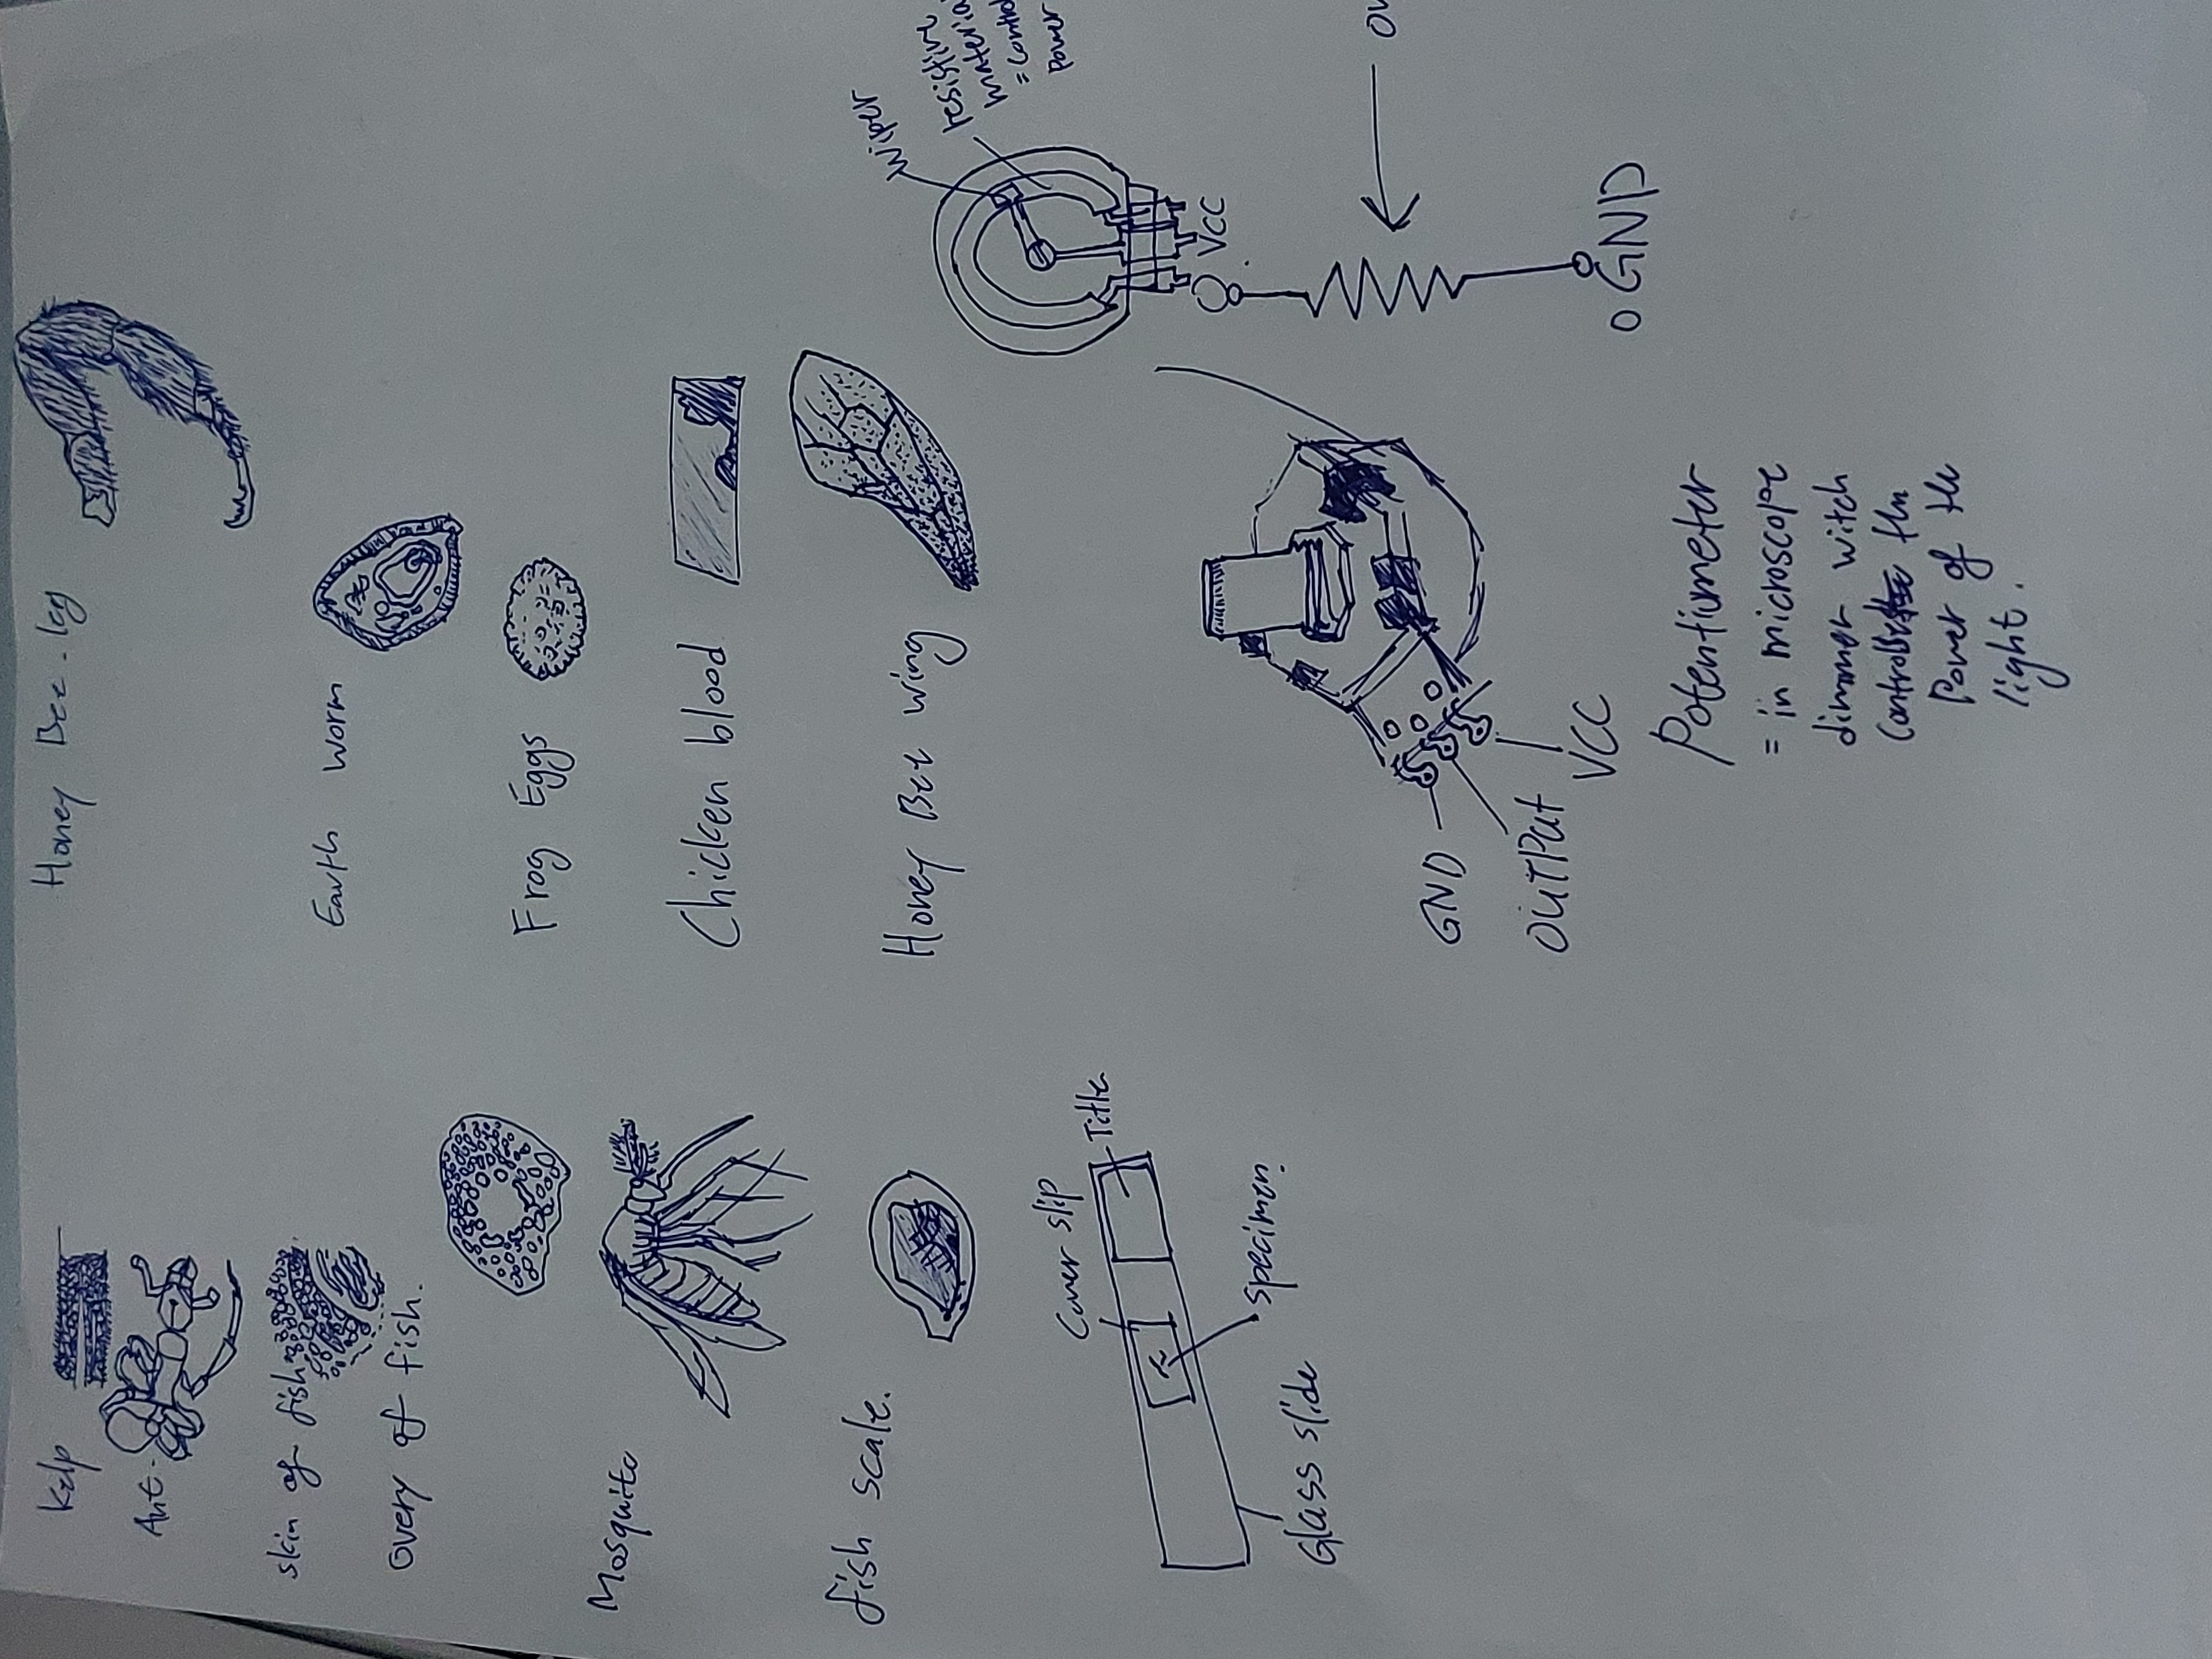 Kelp
Ant.
skin of fish
overy of fish.
Mosquito
fish scale.
Cover slip
Title
specimen.
Glass slide
Honey Bee leg
Earth worm
Frog Eggs
Chicken blood
Honey Bee wing
GND
OUTPUT
VCC
wiper
resistive
= control
power
VCC
GND
= in microscope
dimmer witch
the
Power of the
light.